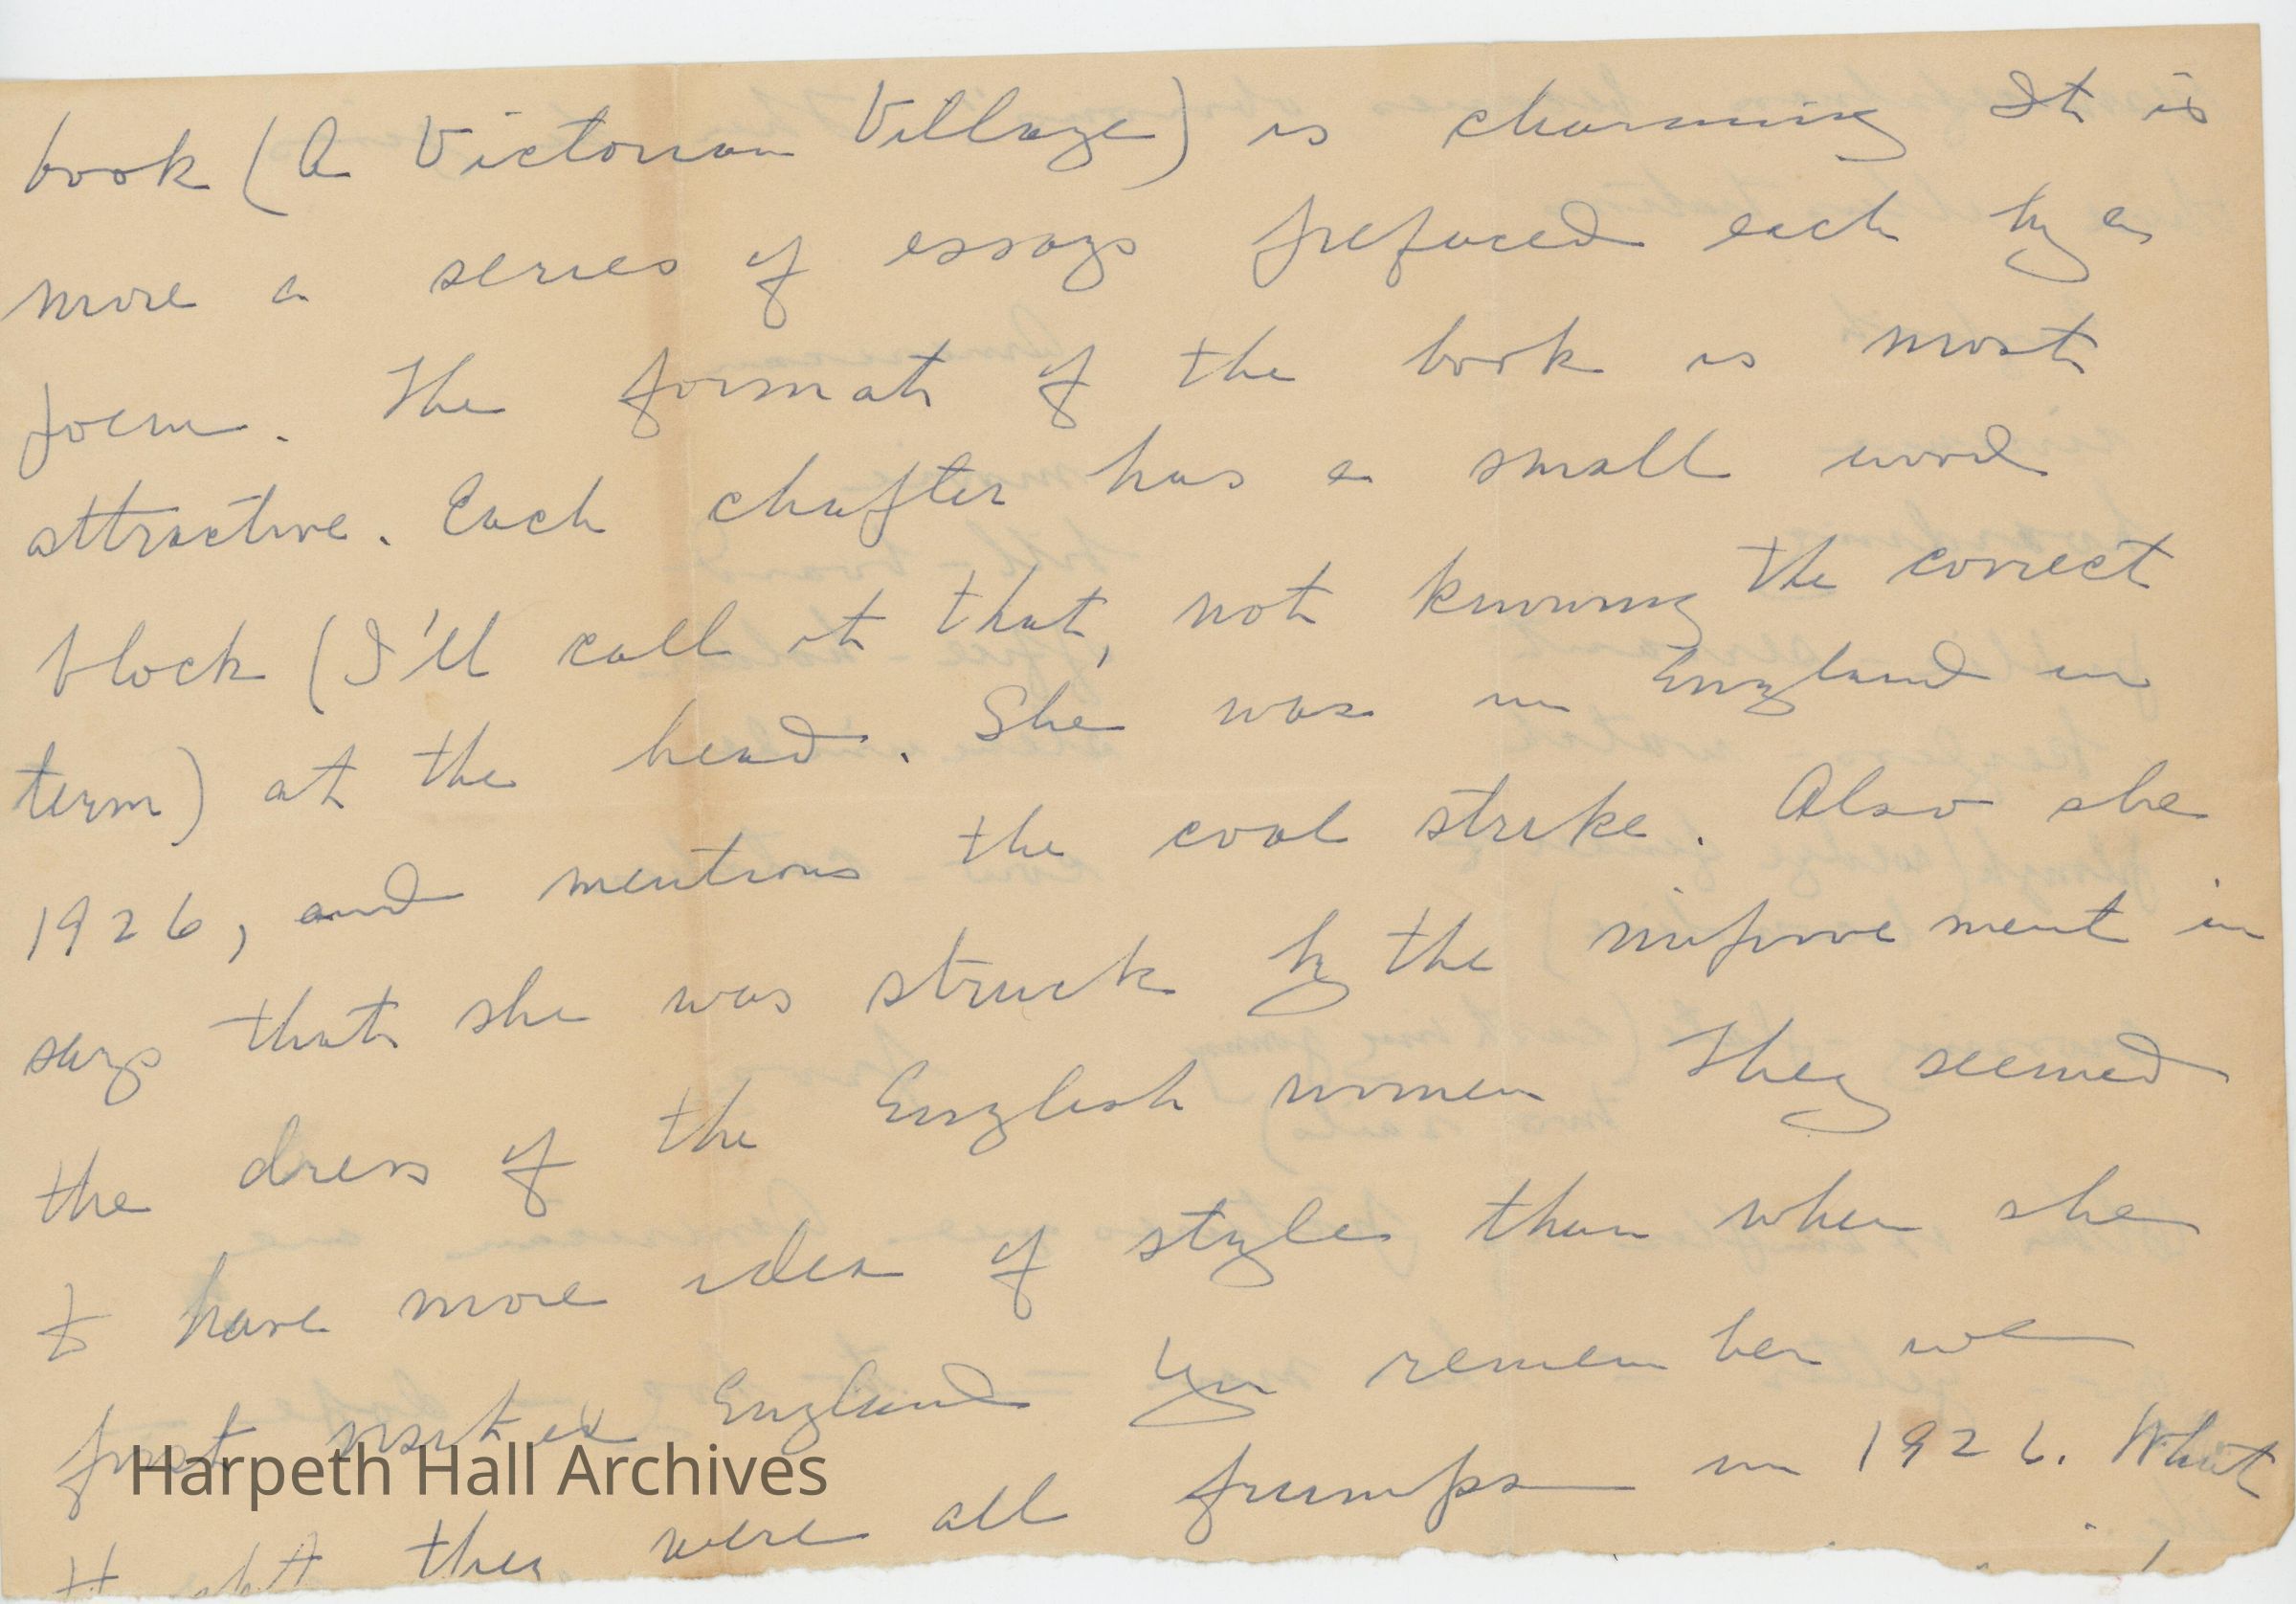 book (A Victorian Village) is charming It is
more a series of essays prefaced each by a
poem. The format of the book is most
attractive. Each chapter has a small word
block (I'll call it that, not knowing the correct
term) at the head. She was in England in
1926, and mentions the coal strike. Also she
says that she was struck by the improvement in
the dress of the English women They seemed
to have more idea of style than when she
first visited England You remember we
thought they were all frumps in 1926. What
Harpeth Hall Archives